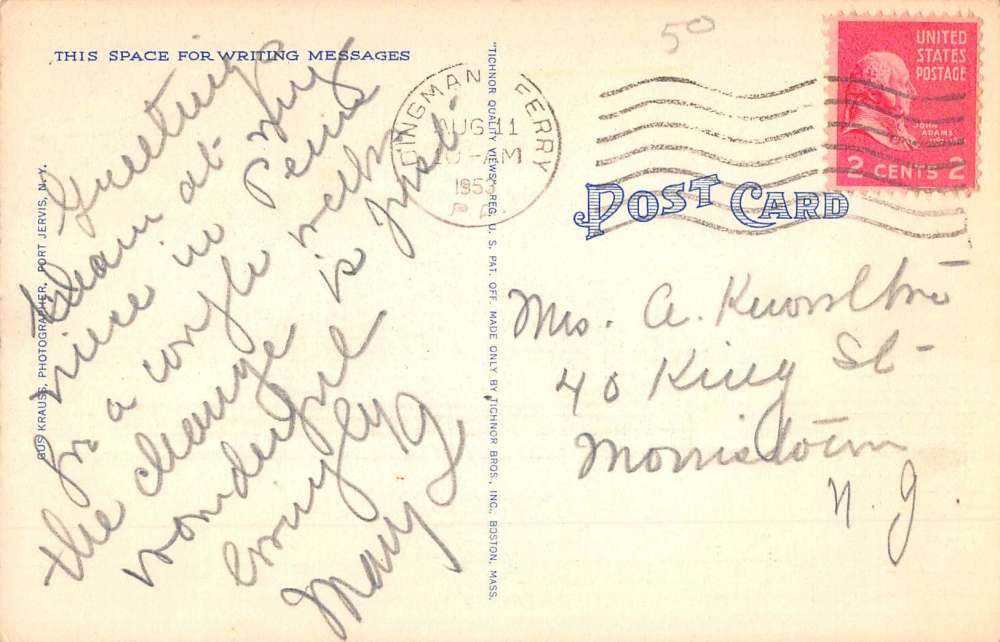 THIS SPACE FOR WRITING MESSAGES
Greetings
at my
niece in Penna
for a couple weeks
the change is just
wonderful
Mary G
GUS KRAUSS, PHOTOGRAPHER, PORT JERVIS, N.Y.
"TICHNOR QUALITY VIEWS" REG. U. S. PAT. OFF. MADE ONLY BY TICHNOR BROS., INC., BOSTON, MASS.
50
DINGMANS FERRY
AUG 11
10-AM
1953
PA.
UNITED
STATES
POSTAGE
JOHN
ADAMS
2 CENTS 2
POST CARD
Mrs. A.
40 King St-
Morristown
N. J.